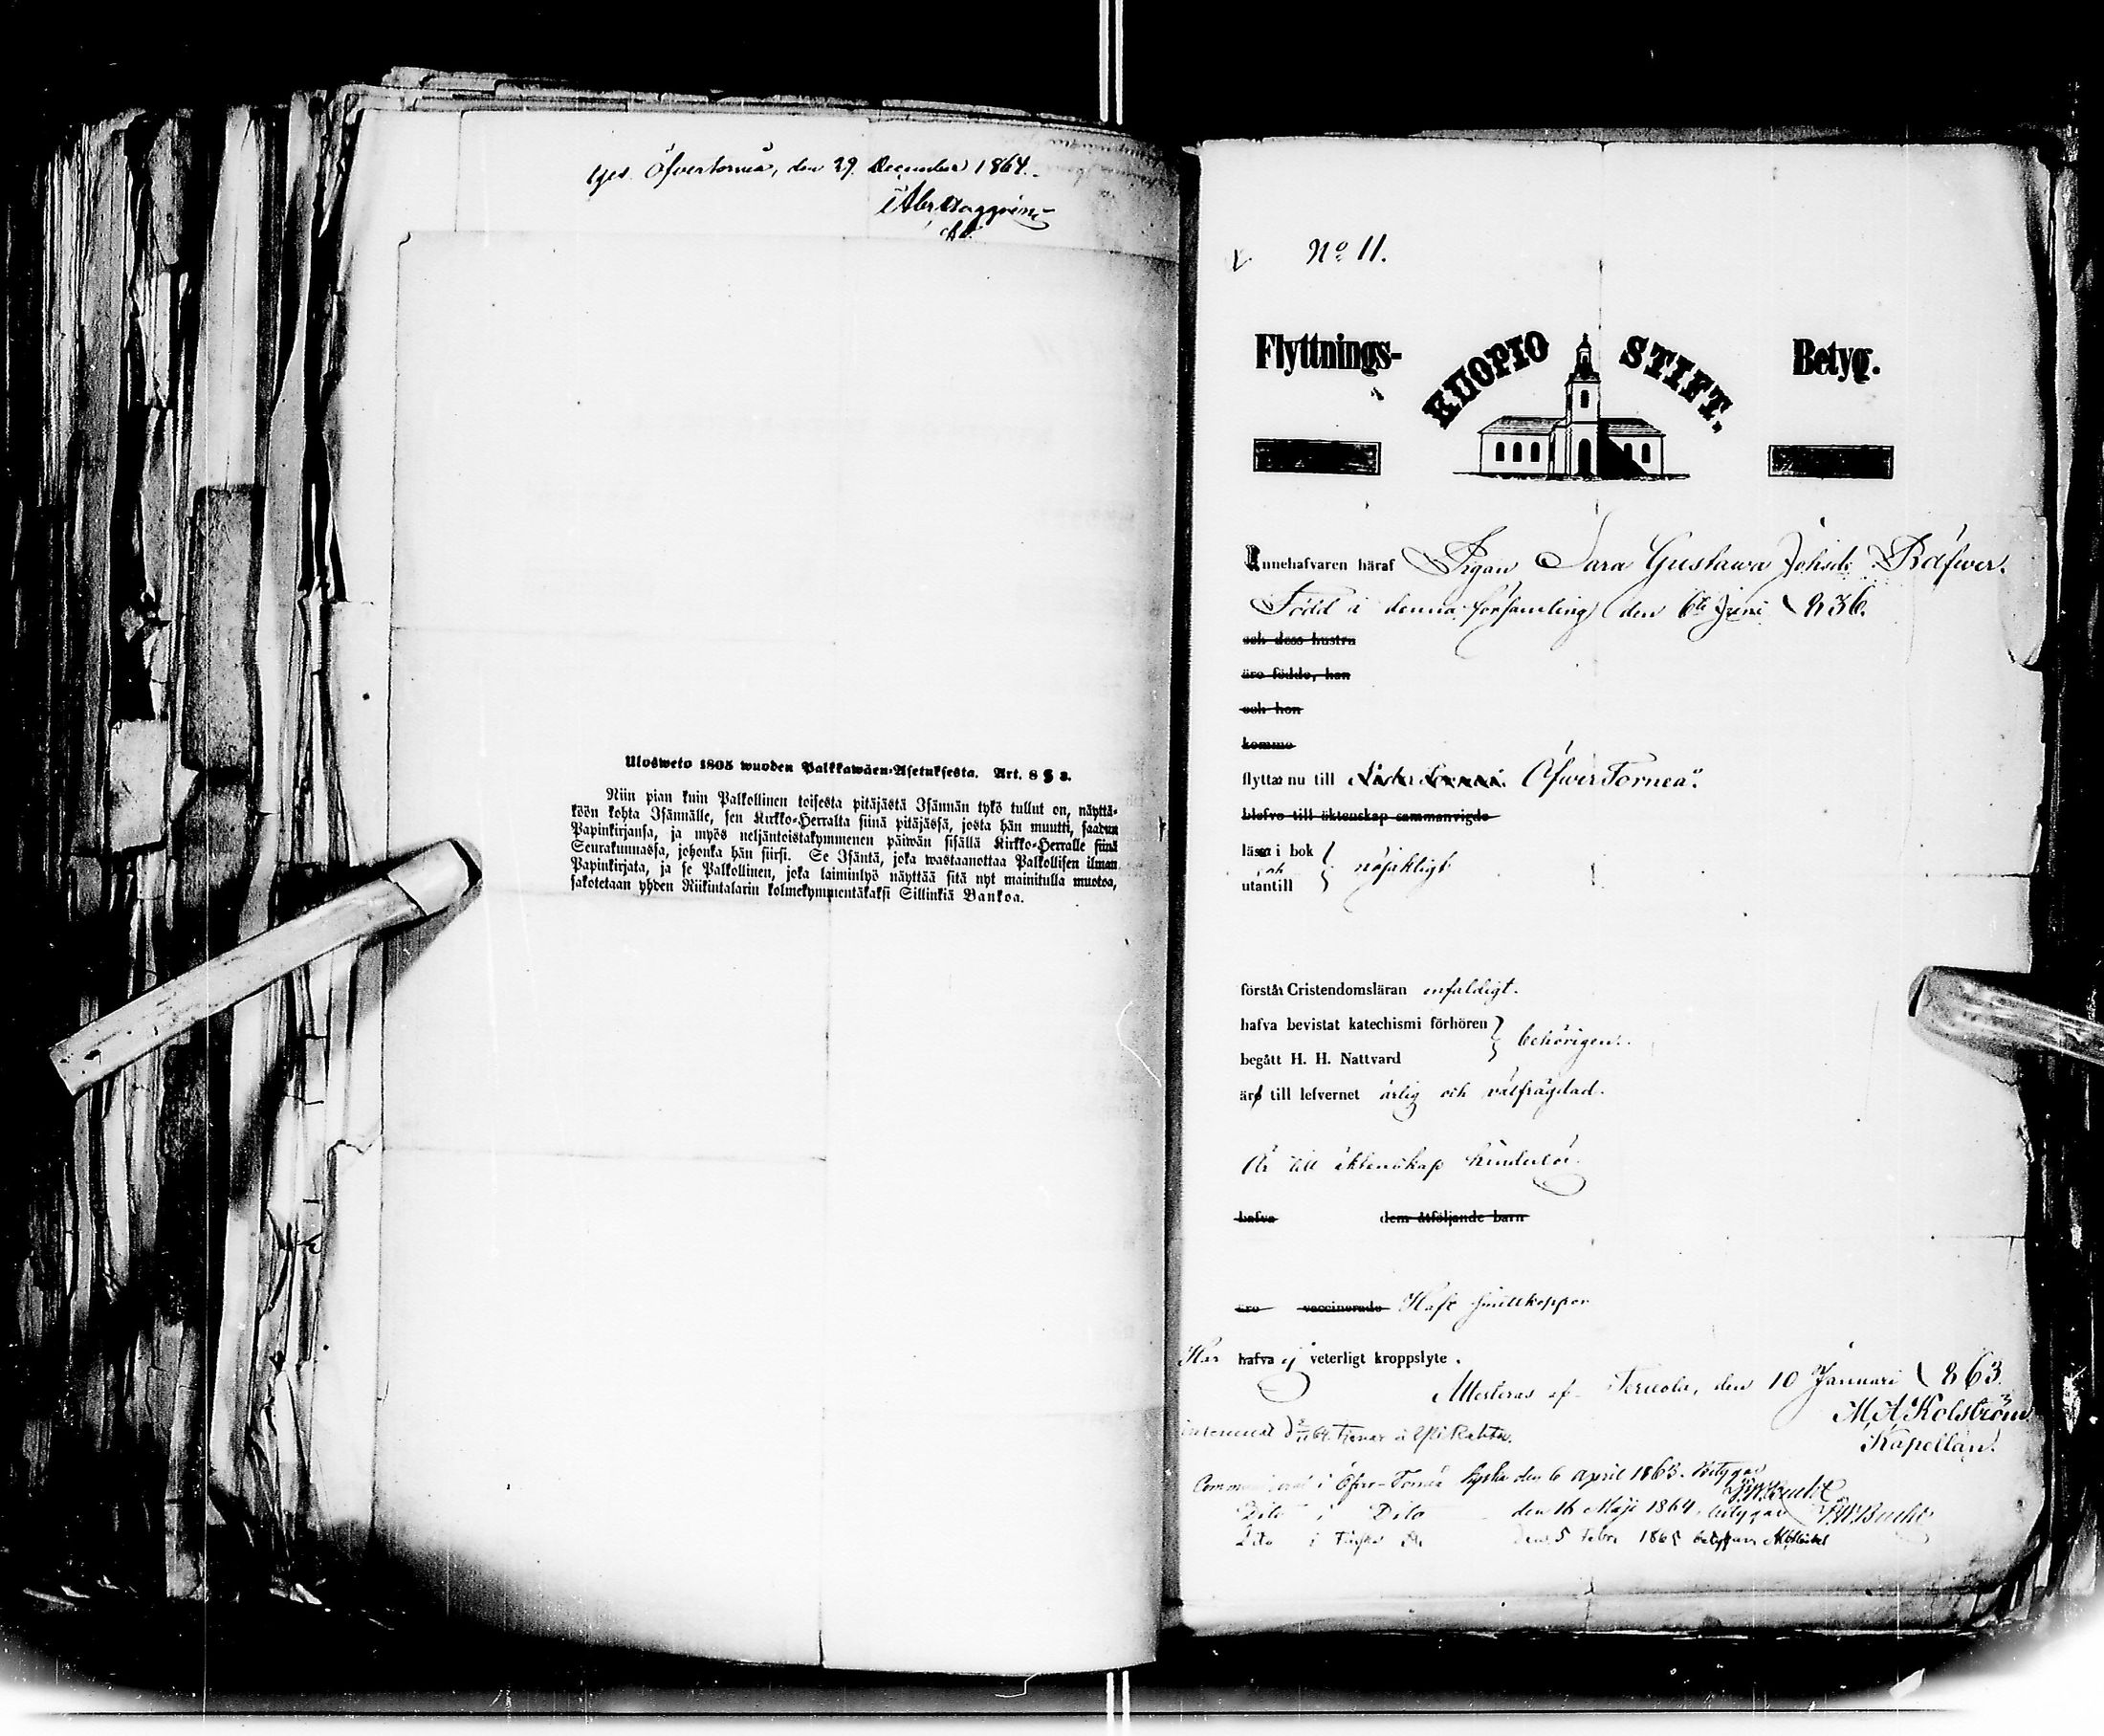 Öfvertorneå, den 29. December 1864.
Ulosweto 1805 wuoden Palkkawäen-Asetuksesta. Art. 8 § 3.
Niin pian kuin Palkollinen toisesta pitäjästä Isännän tykö tullut on, näyttä-
köön kohta Isännälle, sen Kirkko-Herralta siinä pitäjässä, josta hän muutti, saadun
Papinkirjansa, ja myös neljäntoistakymmenen päiwän sisällä Kirkko-Herralle siinä
Seurakunnassa, johonka hän siirsi. Se Isäntä, joka wastaanottaa Palkollisen ilman
Papinkirjata, ja se Palkollinen, joka laiminlyö näyttää sitä nyt mainitulla muotoa,
sakotetaan yhden Riikintalarin kolmekymmentäkaksi Sillinkiä Bankoa.
No 11.
Flyttnings- KUOPIO STIFT. Betyg.
Innehafvaren häraf Pigan Sara Gustawa Johsdr Räfwer.
Född i denna församling den 6te Juni 1836.
och dess hustru
äro födde, han
och hon
komme
flyttar nu till ÖfwerTorneå.
blefvo till äktenskap sammanvigde
läsa i bok
och nöjaktligt
utantill
förstår Cristendomsläran enfaldigt.
hafva bevistat katechismi förhören
behörigen.
begått H. H. Nattvard
äro till lefvernet ärlig och välfrägdad.
Är till äktenskap hinderlös.
hafva dem åtföljande barn
äro vaccinerade Haft smittkoppor
Har hafva ej veterligt kroppslyte.
Attesteras af Tervola, den 10 Januari 1863.
M. A. Kolström
Kapellan.
i Öfver-Torneå kyrka den 6 April 1863. betygar
Dito i Dito den 16 Maji 1864. betygar F.W.Bucht
Dito i den 5 Febr. 1865 betygar